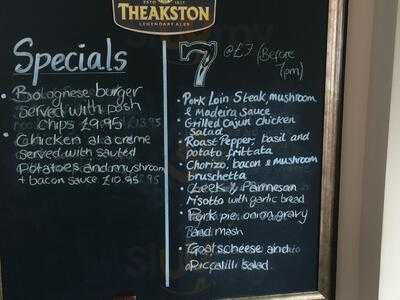 ESTD 1827
THEAKSTON
LEGENDARY ALES
Specials
• Bolognese burger
served with posh
Chips £9.95
• Chicken a la creme
served with sauted
Potatoes and mushroom
+ bacon sauce £10.95
7 @ £7 (Before
(pm)
• Pork Loin Steak, mushroom
& Madeira Sauce
• Grilled Cajun chicken
Salad
• Roast Pepper, basil and
potato frittata
• Chorizo, bacon & mushroom
bruschetta
• Leek & Parmesan
risotto with garlic bread
• Pork pie, onion gravy
and mash
• Goats cheese and
Piccalilli salad